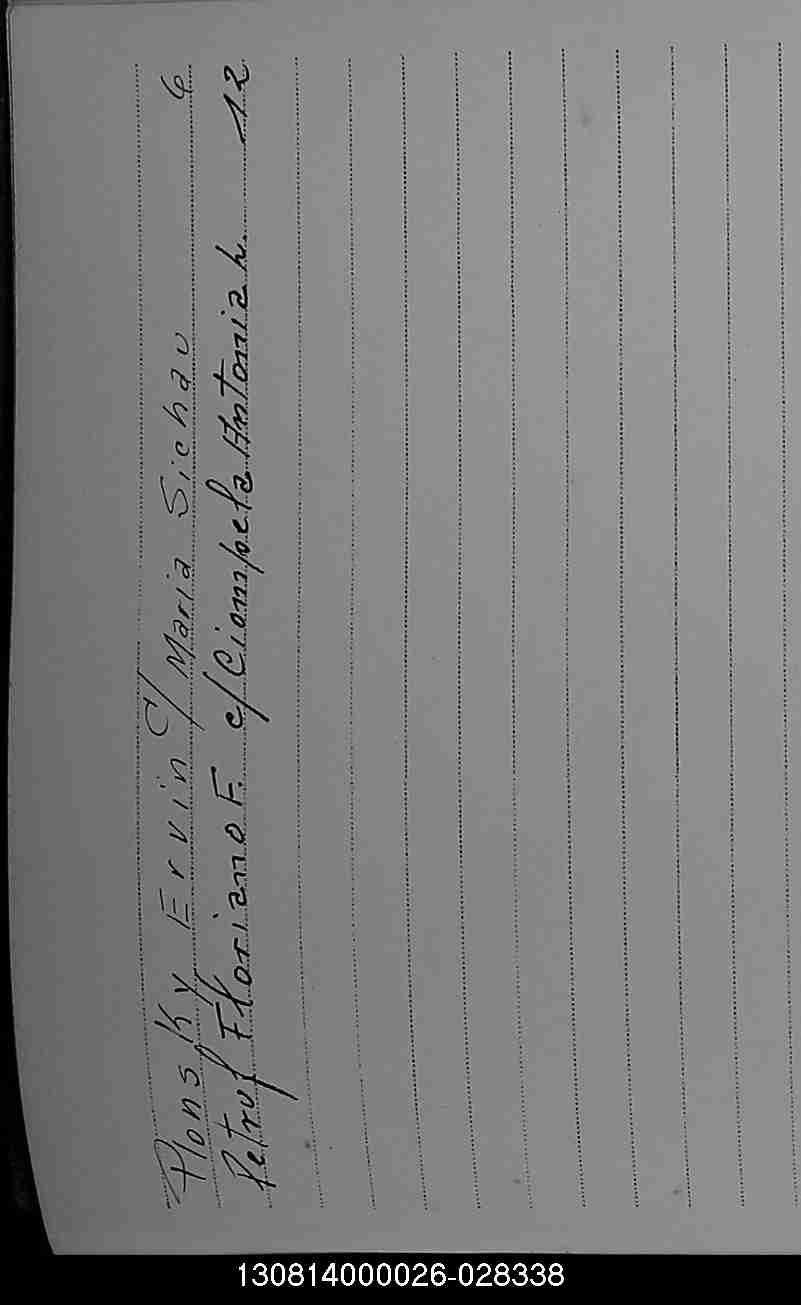 Plonsky Ervin c/ Maria Sichau 6
Petruf Floriano F. c/ Ciompela Antonia h. 12
130814000026-028338